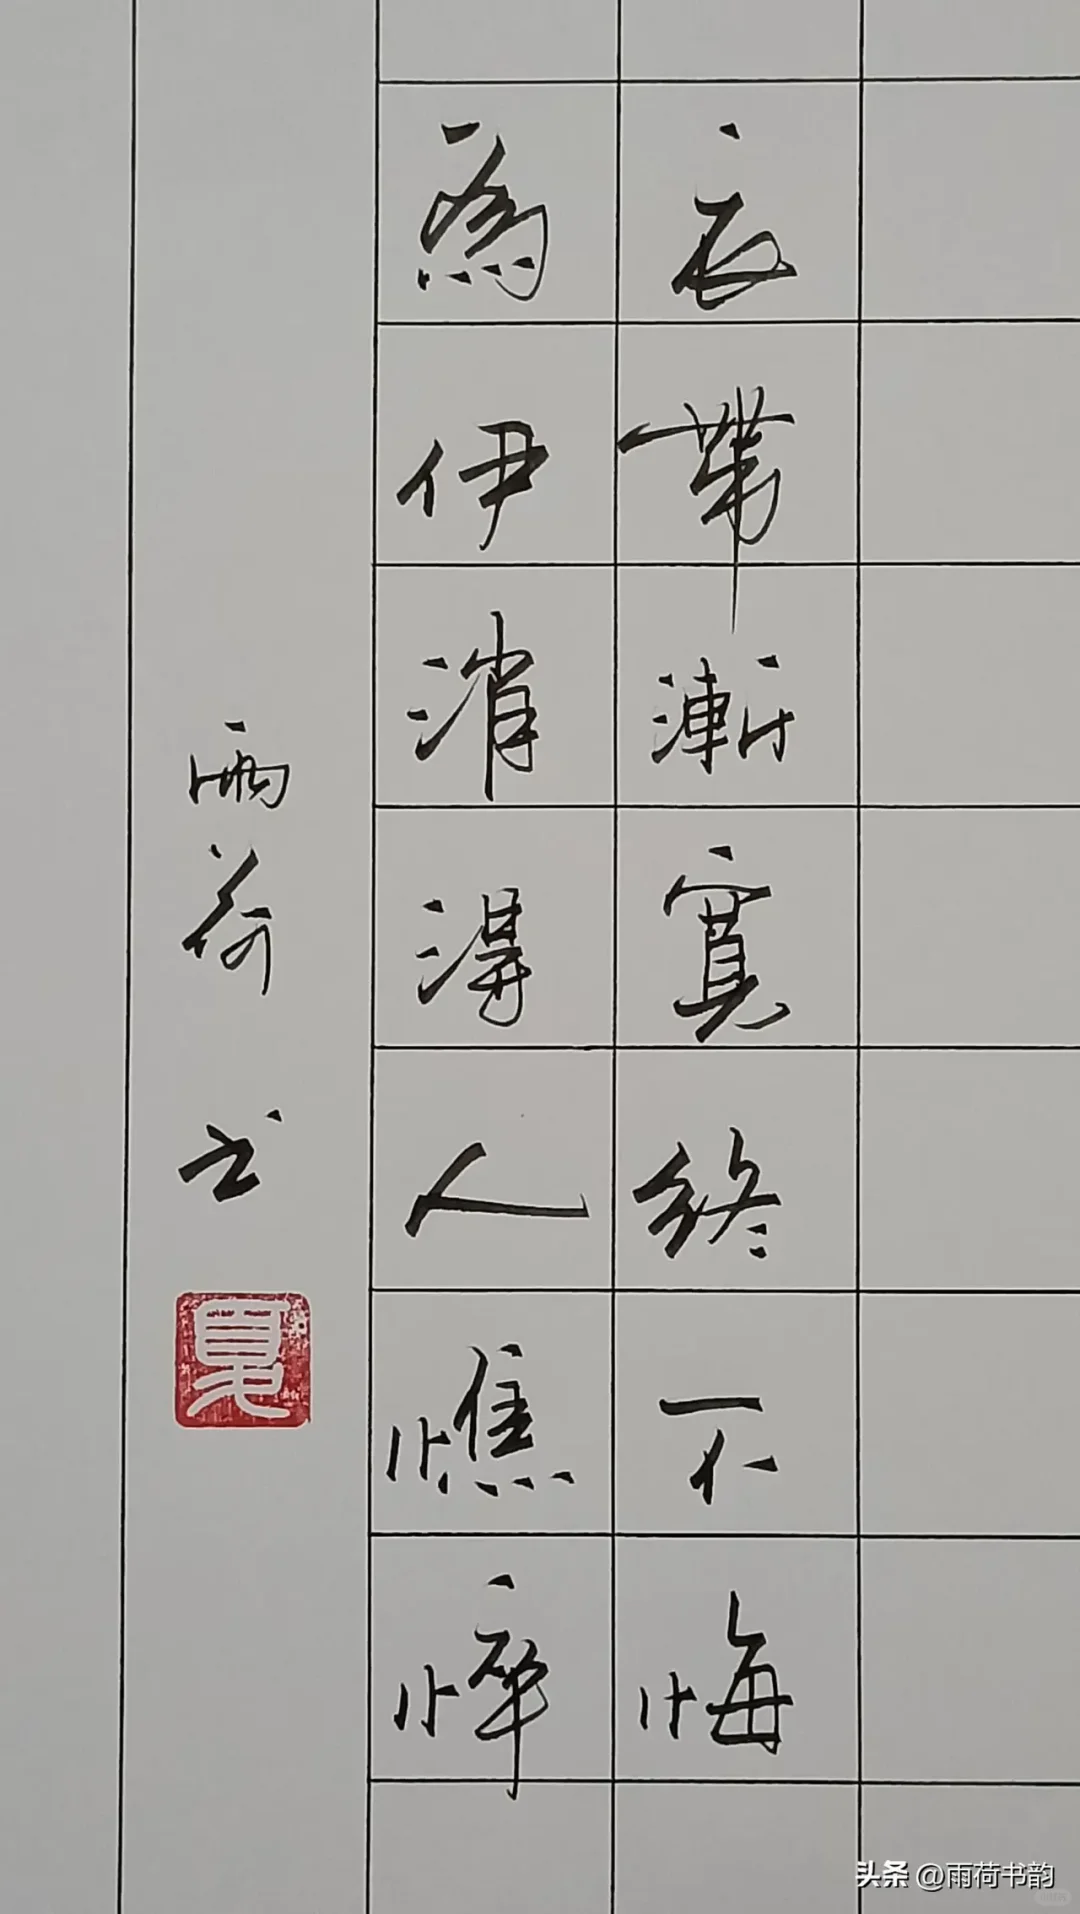 衣帶漸寬終不悔
為伊消得人憔悴
雨荷书
夏
头条 @雨荷书韵